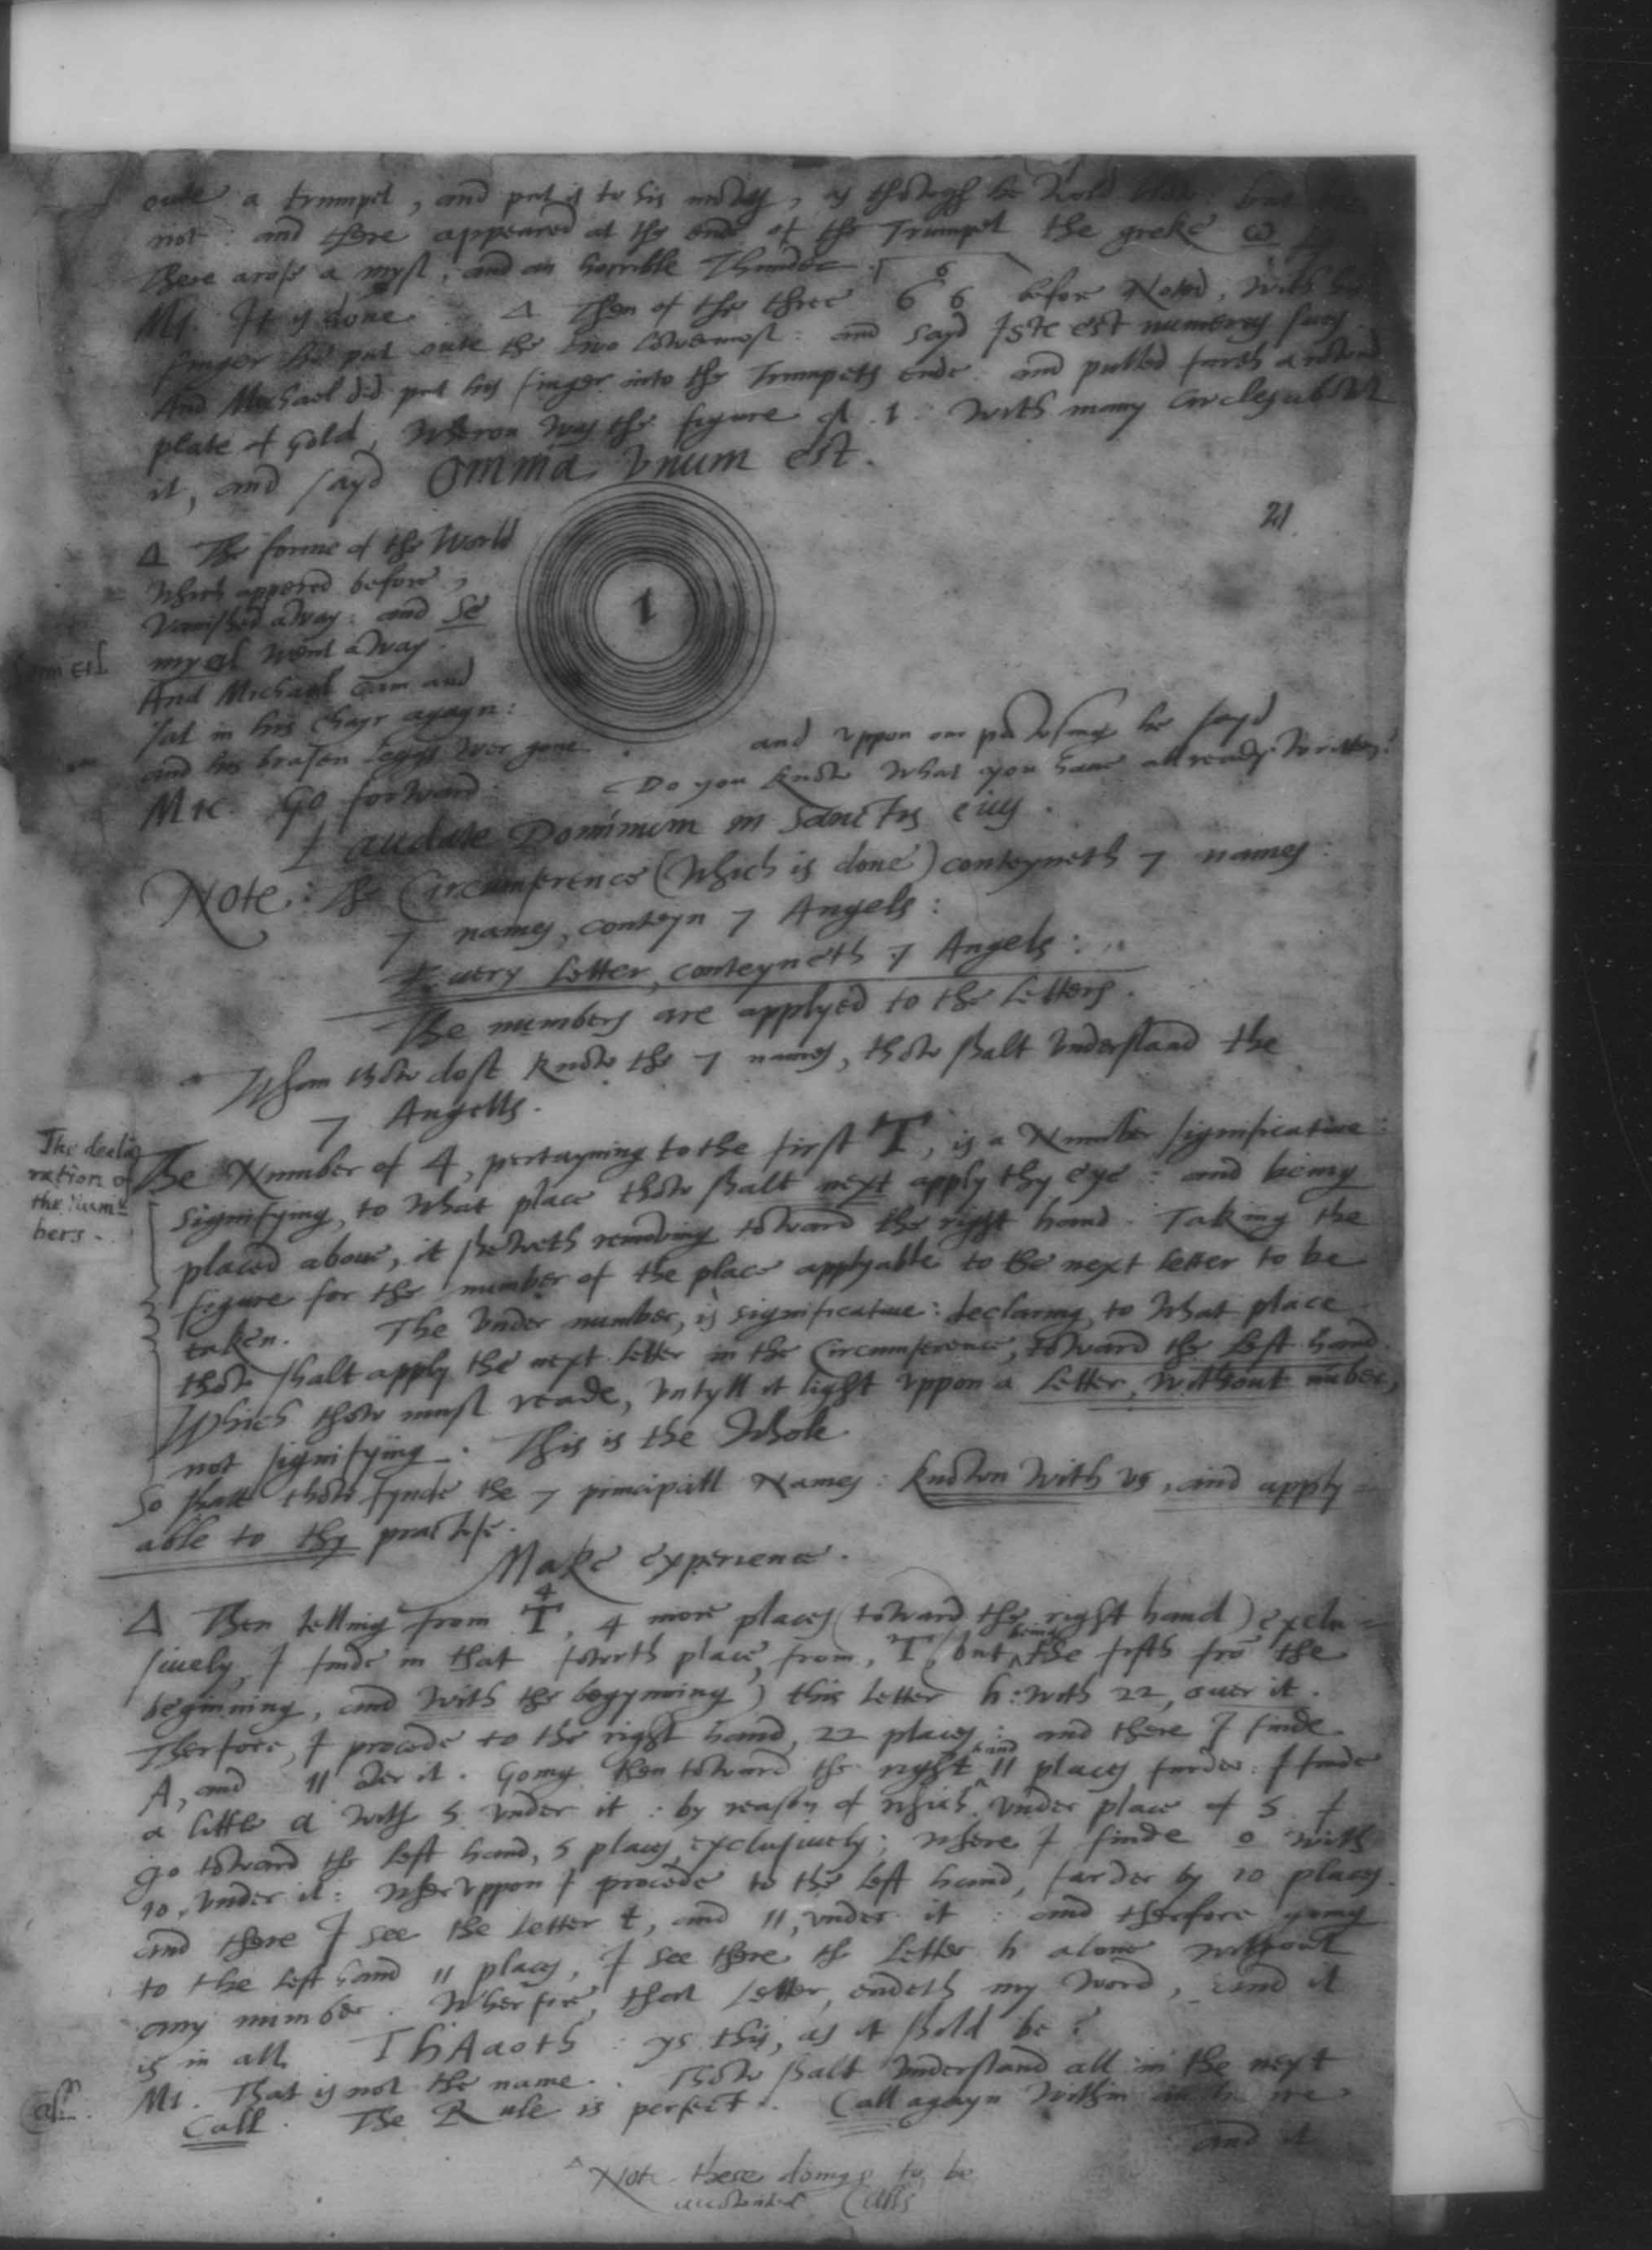 oute a trumpet, and put it to his mowth, as thowgh he wold blow: but
not: and there appeared at the ende of the Trumpet the greke ω
There arose a myst, and an horrible Thunder.
Mi. It ys done. Δ Then of the three 6 6 6 before Noted, with his
finger he put oute the two lowermost: and sayd Iste est numerus suus.
And Michael did put his finger into the Trumpets ende, and pulled furth a rownd
plate of Gold, wheron was the figure of .1. with many Circles abowt
it, and sayd Omnia vnum est.
21
1
Δ The forme of the World
which appered before,
vanished away: and Se
myel went away.
And Michael cam and
sat in his Chayr agayn:
and his brasen leggs wer gone.
and vppon our pawsing he sayd
Mic. Go forward. Do you know what you have allready written?
Laudate Dominum in Sanctis eius.
Note: The Circumference (which is done) conteyneth 7 names:
7 names, conteyn 7 Angels:
Every letter, conteyneth 7 Angels:
The numbers are applyed to the letters.
Whan thow dost know the 7 names, thow shalt vnderstand the
7 Angells.
The decla
ration of
the num=
bers.
The Number of 4, pertayning to the first T, is a Number significative:
signifying, to what place thow shalt next apply thy eye: and being
placed above, it sheweth removing toward the right hand. Taking the
figure for the number of the place applyable to the next letter to be
taken. The vnder number, is significative: declaring, to what place
thow shalt apply the next letter in the Circumference, toward the left hand.
Which thow must reade, vntyll it light vppon a letter, without nūber,
not signifying. This is the Whole.
So shalt thow fynde the 7 principall Names: known with vs, and apply=
able to thy practise.
Make experience.
Δ Then telling from T 4, 4 more places (toward the right hand) exclu=
sively, I finde in that fowrth place, from, T, (but being the fifth frō the
beginning, and with the begynning) this letter h: with 22, over it.
Therfore, I procede to the right hand, 22 places: and there I finde
A, and 11 over it. Going then toward the right hand 11 places furder: I finde
a little a with 5 vnder it: by reason of which vnder place of 5 I
go toward the left hand, 5 places, exclusively; where I finde o with
10, vnder it: wheruppon I procede to the left hand, farder by 10 places.
and there I see the letter t, and 11, vnder it: and therfore going
to the left hand 11 places, I see there the letter h alone without
any number. Wherfore, that letter, endeth my word, and it
is in all ThAaoth: ys this, as it shold be?
Mi. That is not the name. Thow shalt vnderstand all in the next
Call. The Rule is perfect. Call agayn within an howre
and it
Call.
Note these doings to be
accownted Calls